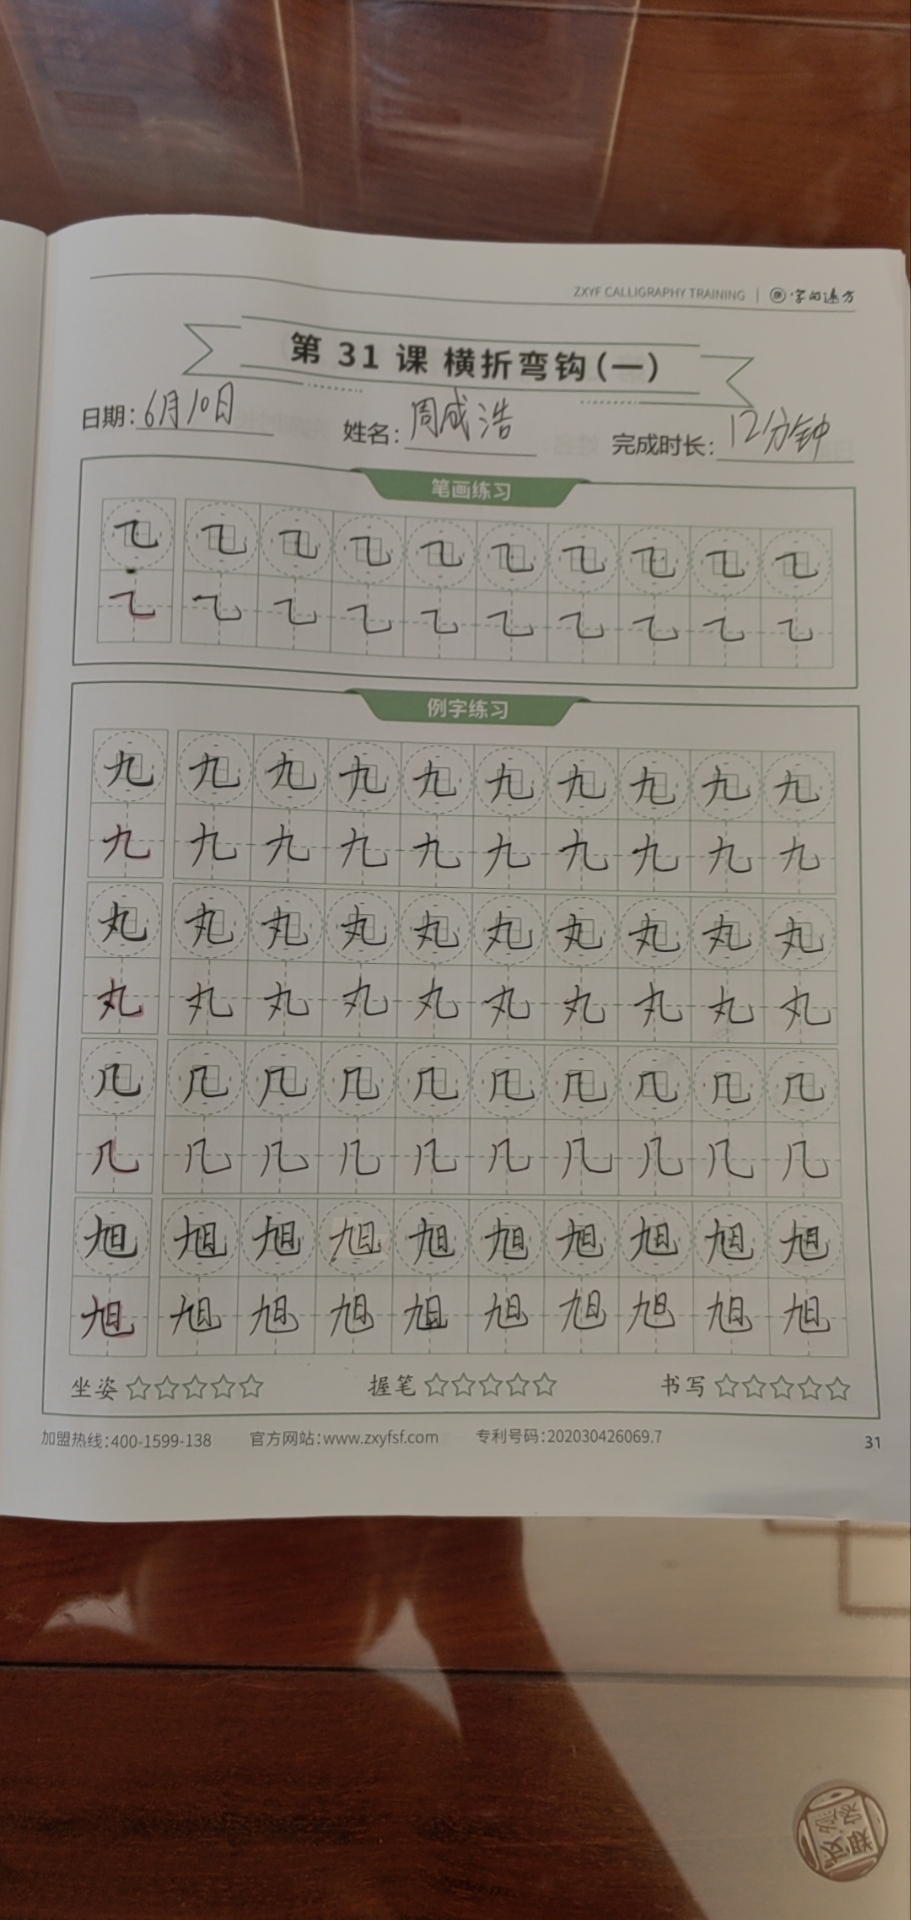 ZXYF CALLIGRAPHY TRAINING | 字的远方
第 31 课 横折弯钩(一)
日期:6月10日 姓名:周成浩 完成时长:12分钟
笔画练习
乙 乙 乙 乙 乙 乙 乙 乙 乙 乙
乙 乙 乙 乙 乙 乙 乙 乙 乙 乙
例字练习
九 九 九 九 九 九 九 九 九 九
九 九 九 九 九 九 九 九 九 九
丸 丸 丸 丸 丸 丸 丸 丸 丸 丸
丸 丸 丸 丸 丸 丸 丸 丸 丸 丸
几 几 几 几 几 几 几 几 几 几
几 几 几 几 几 几 几 几 几 几
旭 旭 旭 旭 旭 旭 旭 旭 旭 旭
旭 旭 旭 旭 旭 旭 旭 旭 旭 旭
坐姿☆☆☆☆☆ 握笔☆☆☆☆☆ 书写☆☆☆☆☆
加盟热线:400-1599-138 官方网站:www.zxyfsf.com 专利号码:202030426069.7 31